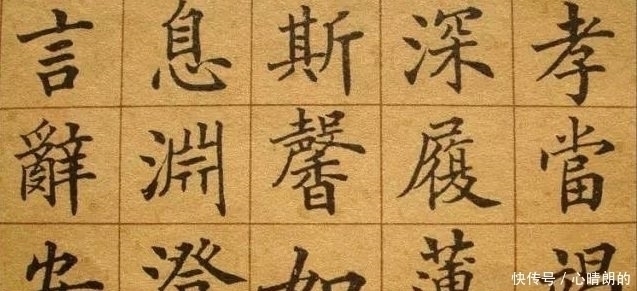 孝當
深履薄
斯馨如
息淵澄
言辭安
快传号 / 心晴朗的